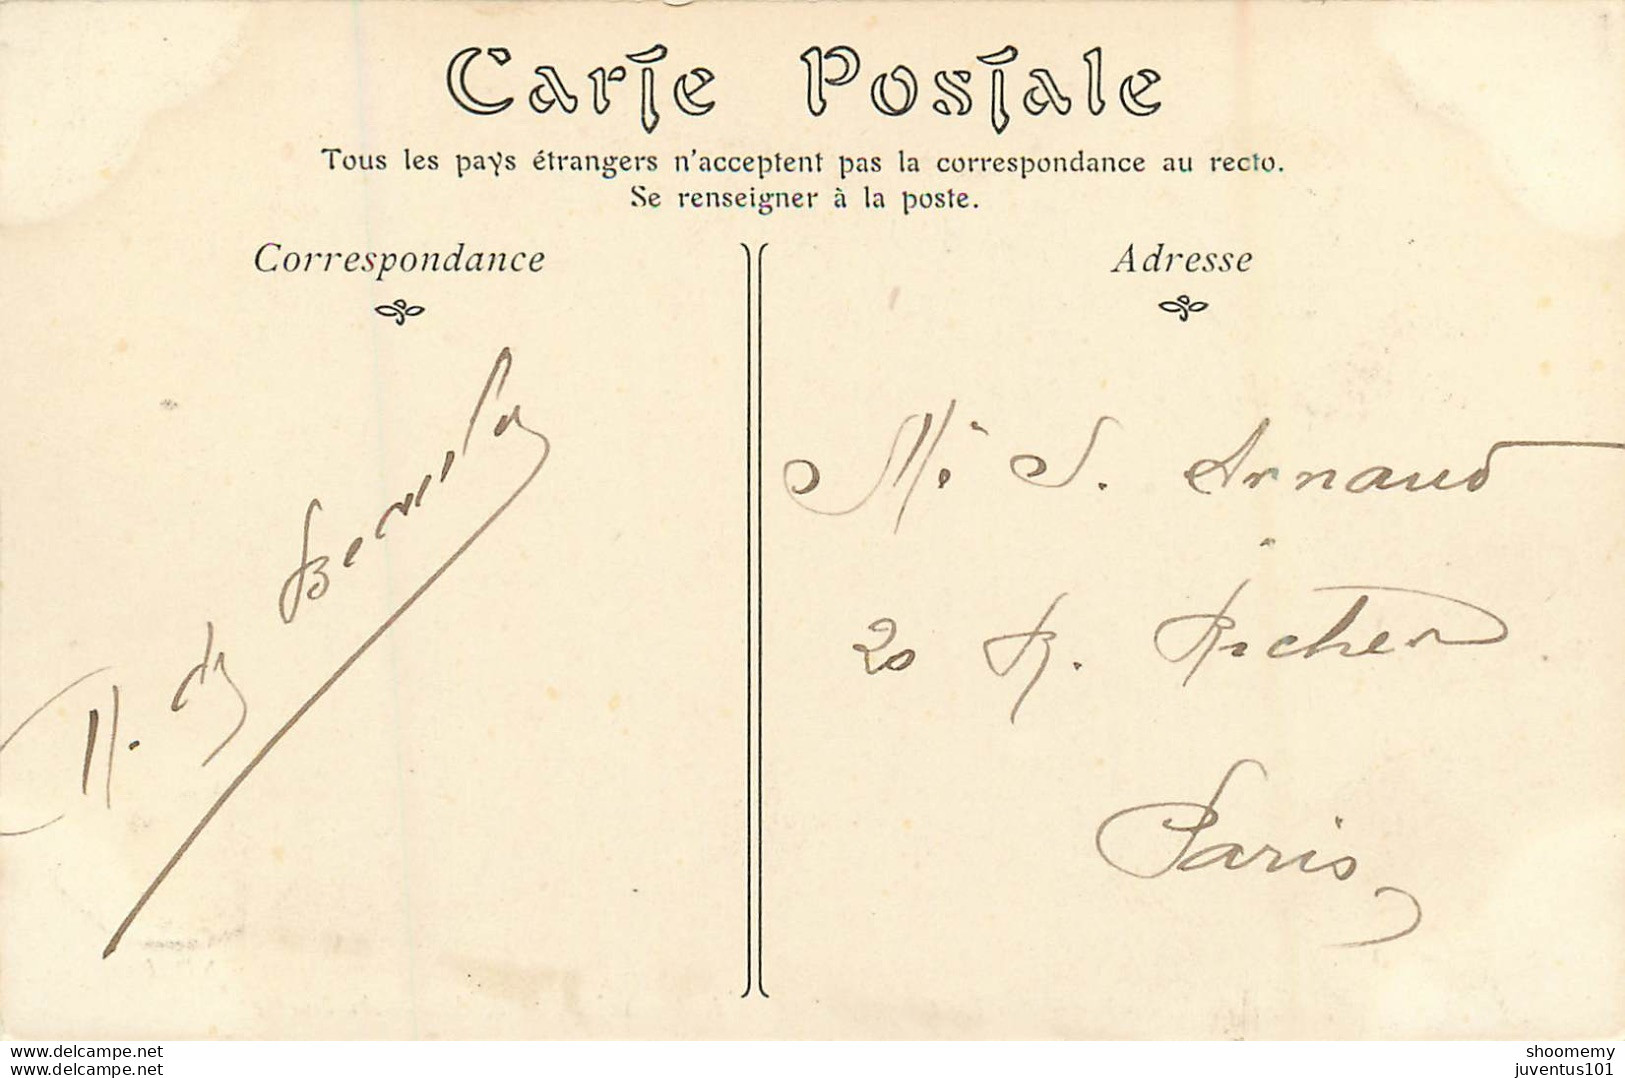 Carte Postale
Tous les pays étrangers n'acceptent pas la correspondance au recto.
Se renseigner à la poste.
Correspondance
Adresse
Mr S. Arnaud
20 R. Richer
Paris
www.delcampe.net
www.delcampe.net
shoomemy
juventus101